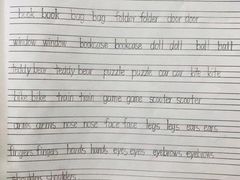 book book bag bag folder folder door door
window window bookcase bookcase doll doll ball ball
teddy bear teddy bear puzzle puzzle car car kite kite
bike bike train train game game scooter scooter
arms arms nose nose face face legs legs ears ears
fingers fingers hands hands eyes eyes eyebrows eyebrows
shoulders shoulders